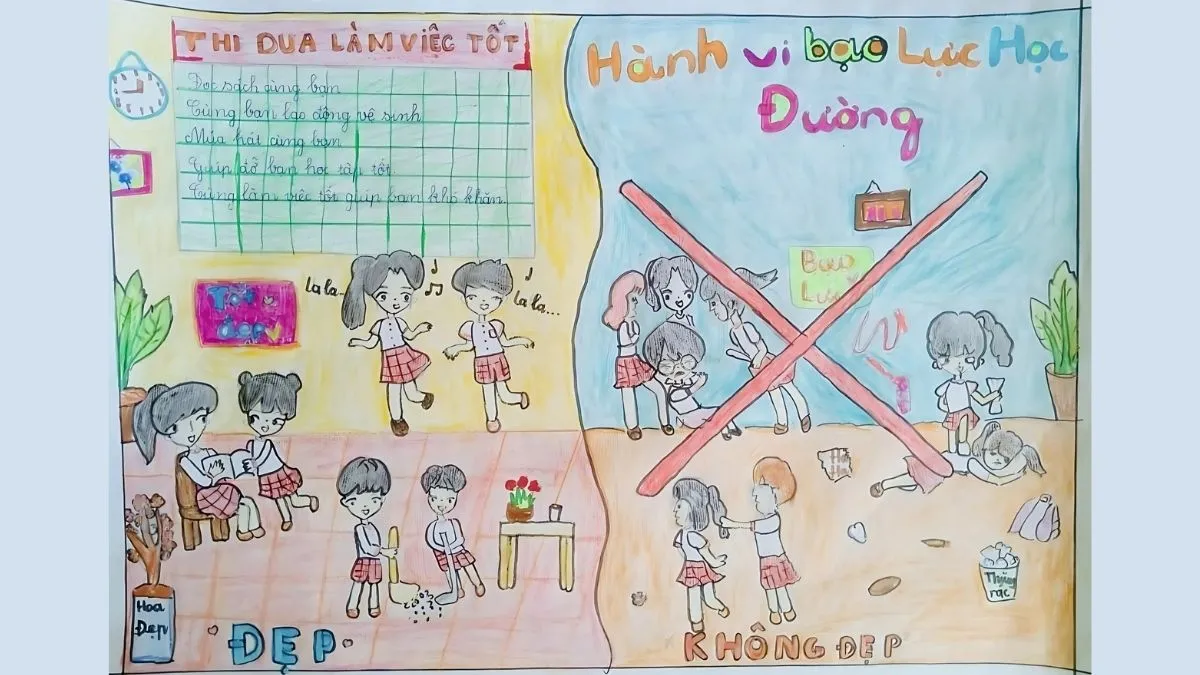 THI ĐUA LÀM VIỆC TỐT
Đọc sách cùng bạn
Cùng bạn lao động vệ sinh
Múa hát cùng bạn
Giúp đỡ bạn học tập tốt
Cùng làm việc tốt giúp bạn khó khăn.
Tốt
đẹp
la la..
la la...
Hoa
Đẹp
ĐẸP
Hành vi bạo Lực Học
Đường
Bạo
Lực
Ha
Ha
Thùng
rác
KHÔNG ĐẸP